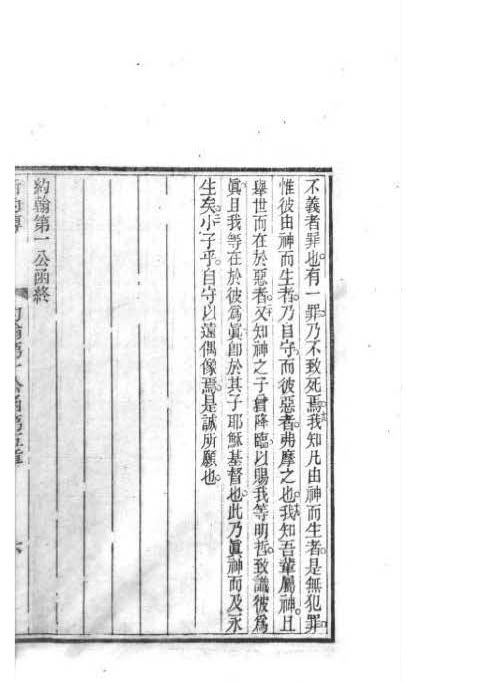 不義者罪也有一罪乃不致死焉我知凡由神而生者是無犯罪
惟彼由神而生者乃自守而彼惡者弗摩之也我知吾輩屬神且
舉世而在於惡者又知神之子曾降臨以賜我等明哲致識彼為
眞且我等在於彼為眞卽於其子耶穌基督也此乃眞神而及永
生矣小子乎自守以遠偶像焉是誠所願也
約翰第一公函終
約翰第一公函第五章
六